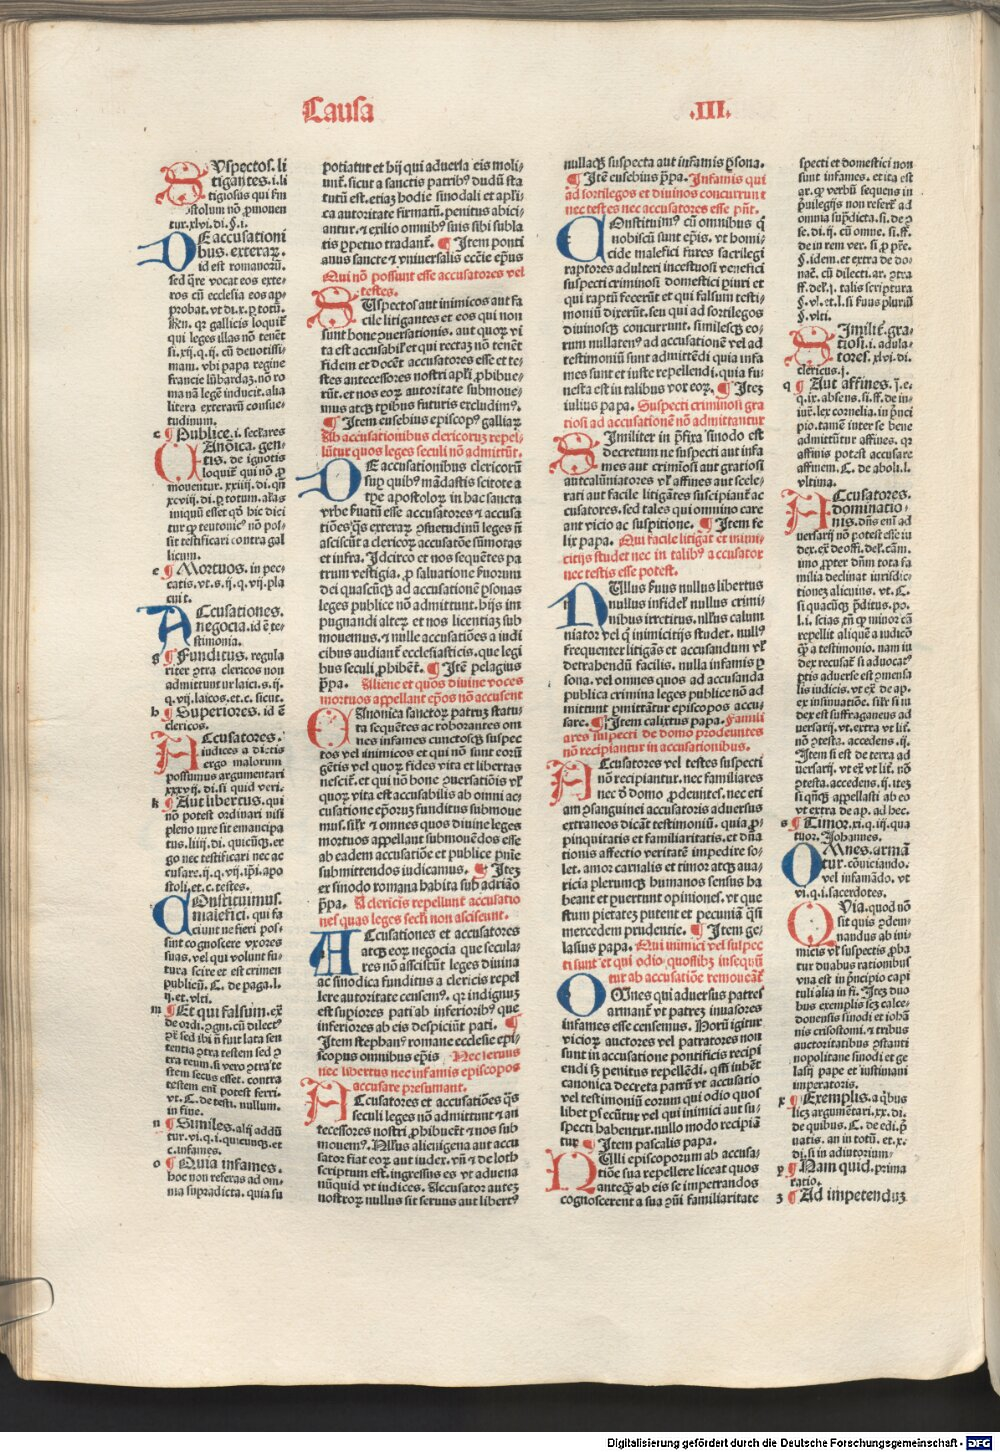 Causa
.III.
Suspectos. li
tigantes. i. li
tigiosus qui sm̄
apostolum nō ꝓmouen
tur. xlvi. di. §. i.
De accusationi
bus. exteraꝝ.
id est romanoꝝ.
sed q̄re vocat eos exte-
ros cū ecclesia eos ap-
probat. vt di. x. ꝑ totū.
qui leges illas nō tenēt
si. xij. q. ij. cū deuotissi-
mam. vbi papa regine
francie lūbardaꝫ. nō ro
ma nā legē inducit. alia
litera exteraꝝ consue-
tudinum.
c ¶ Publice. i. seclares
Canōica. gen-
tis. de ignotis
loquit̄ qui nō ꝓ
mouentur. xxiiij. di. qn̄
xcviij. di. ꝑ totum. alias
iniquū esset qd̓ hic dici
tur ꝙ teutonic⁹ nō pos-
sit testificari contra gal
licum.
e ¶ Mortuos. in pec-
catis. vt. s. ij. q. vij. pla
cuit.
Accusationes.
negocia. id ē te-
stimonia.
g ¶ Funditus. regula
riter ɔtra clericos non
admittunt̄ laici. s. ij.
q. vij. laicos. et. c. sicut.
h ¶ Superiores. id ē
clericos.
Accusatores.
iudices a dictis
ergo malorum
possumus argumentari
xxxvij. di. si quid veri.
k ¶ Aut libertus. qui
nō potest ordinari nisi
pleno iure sit emancipa
tus. liiij. di. quicūqꝫ. er
go nec testificari nec ac
cusare. ij. q. vij. ip̄i. apo
stoli. et. c. testes.
Constituimus.
malefici. qui fa
ciunt ne fieri pos-
sint cognoscere vxores
suas. vel qui volunt fu-
tura scire et est crimen
publicū. C. de paga. l.
ij. et. vlti.
m ¶ Et qui falsum. ex̄
de ordi. ɔgni. cū dilect⁹
sed ibi n̄ fuit lata sen
tentia ɔtra testem sed ɔ
tra reum. si vero ɔtra te
stem secus esset. contra
testem em̄ potest ferri.
vt. C. de testi. nullum.
in fine.
n ¶ Similes. alij addū
tur. vi. q. i. quicunqꝫ. et
c. infames.
o ¶ Quia infames.
hoc non referas ad om-
nia supradicta. quia su
potiatur et hij qui aduersa eis moli-
unt̄. sicut a sanctis patrib⁹ dudū sta
tutū est. etiaꝫ hodie sinodali et apl̓i
ca autoritate firmatū. penitus abici-
antur. ⁊ exilio omnib⁹ suis sibi subla
tis ꝑpetuo tradant̄. ¶ Item ponti
anus sancte ⁊ vniuersalis ecc̄ie ep̄us
Qui nō possunt esse accusatores vel
testes.
Suspectos aut inimicos aut fa
cile litigantes et eos qui non
sunt bone ɔuersationis. aut quoꝝ vi
ta est accusabil̓ et qui rectaꝫ nō tenēt
fidem et docēt accusatores esse et te-
stes antecessores nostri apl̓i ꝓhibue-
rūt. et nos eoꝝ autoritate submoue-
mus atqꝫ tꝑibus futuris excludim⁹.
¶ Item eusebius episcop⁹ galliaꝝ
Ab accusationibus clericoruꝫ repel-
lūtur quos leges seculi nō admittūt.
De accusationibus clericorū
suꝑ quib⁹ mādastis scitote a
tꝑe apostoloꝝ in hac sancta
vrbe ẜuatū esse accusatores ⁊ accusa
tiōes q̄s exteraꝝ ɔsuetudinū leges n̄
asciscūt a clericoꝝ accusatōe sūmotas
et infra. Idcirco et nos sequētes pa
trum vestigia. ꝓ saluatione ẜuorum
dei quascūqꝫ ad accusationē ꝑsonas
leges publice nō admittunt. hijs im
pugnandi alteꝝ et nos licentiaꝫ sub
mouemus. ⁊ nulle accusatiōes a iudi
cibus audiant̄ ecclesiasticis. que legi
bus seculi ꝓhibent̄. ¶ Itē pelagius
p̄pa. Aliene et quos diuine voces
mortuos appellant ep̄os nō accusent
Canonica sanctoꝝ patruꝫ statu-
ta sequētes ac roborantes om
nes infames cunctosqꝫ suspec
tos vel inimicos et qui nō sunt eorū
gētis vel quoꝝ fides vita et libertas
nescit̄. et qui nō bone ɔuersatiōis vl̓
quoꝝ vita est accusabilis ab omni ac-
cusatione ep̄oruꝫ funditus submoue
mus. sil̓r ⁊ omnes quos diuine leges
mortuos appellant submouēdos esse
ab eadem accusatiōe et publice pn̄ie
submittendos iudicamus. ¶ Iteꝫ
ex sinodo romana habita sub adriāo
p̄pa. A clericis repellunt̄ accusatio
nes quas leges secl̓i non asciscunt.
Accusationes et accusatores
atqꝫ eoꝝ negocia que secula-
res nō asciscūt leges diuina
ac sinodica funditus a clericis repel
lere autoritate censem⁹. qꝛ indignuꝫ
est supiores pati ab inferiorib⁹ que
inferiores ab eis despiciūt pati. ¶
Item stephan⁹ romane ecclesie epi-
scopus omnibus ep̄is Nec seruus
nec libertus nec infamis episcopos
accusare presumant.
Accusatores et accusatiōes q̄s
seculi leges nō admittunt ⁊ an
tecessores nostri ꝓhibuer̄t ⁊ nos sub
mouem⁹. Nllus alienigena aut accu
sator fiat eoꝝ aut iudex. vn̄ ⁊ de loth
scriptum est. ingressus es vt aduena
nūquid vt iudices. Accusator auteꝫ
nostroꝝ nullus sit seruus aut libert⁹
nullaqꝫ suspecta aut infamis ꝑsona.
¶ Itē eusebius p̄pa. Infamis qui
ad sortilegos et diuinos concurrunt
nec testes nec accusatores esse pn̄t.
Constituim⁹ cū omnibus q̄
nobiscū sunt ep̄is. vt homi-
cide malefici fures sacrilegi
raptores adulteri incestuosi venefici
suspecti criminosi domestici ꝑiuri et
qui raptū fecerūt et qui falsum testi-
moniū dixerūt. seu qui ad sortilegos
diuinosqꝫ concurrunt. similesqꝫ eo-
rum nullaten⁹ ad accusationē vel ad
testimoniū sunt admittēdi quia infa
mes sunt et iuste repellendi. quia fu-
nesta est in talibus vox eoꝝ. ¶ Iteꝫ
iulius papa. Suspecti criminosi gra
tiosi ad accusationē nō admittantur
Similiter in p̄fixa sinodo est
decretum ne suspecti aut infa
mes aut crimiosi aut gratiosi
aut calūniatores vl̓ affines aut scele-
rati aut facile litigātes suscipiant̄ ac
cusatores. sed tales qui omnino care
ant vicio ac suspitione. ¶ Item fe
lix papa. Qui facile litigat et inimi
citijs studet nec in talib⁹ accusator
nec testis esse potest.
Nullus ẜuus nullus libertus
nullus infidel̓ nullus crimi-
nibus irretitus. nll̓us calum
niator vel q̄ inimicitijs studet. null⁹
frequenter litigās et accusandum vl̓
detrahendū facilis. nulla infamis ꝑ
sona. vel omnes quos ad accusanda
publica crimina leges publice nō ad
mittunt ꝑmittant̄ episcopos accu-
sare. ¶ Item calixtus papa. Famili
ares suspecti de domo prodeuntes
nō recipiantur in accusationibus.
Accusatores vel testes suspecti
nō recipiantur. nec familiares
nec d̓ domo ꝓdeuntes. nec eti
am ɔsanguinei accusatoris aduersus
extraneos dicāt testimoniū. quia ꝓ-
pinquitatis et familiaritatis. et dn̄a
tionis affectio veritatē impedire so-
let. amor carnalis et timor atqꝫ aua-
ricia plerunqꝫ humanos sensus ha
beant et ꝑuertunt opiniones. vt que
stum pietateꝫ putent et pecuniā q̄si
mercedem prudentie. ¶ Item ge-
lasius papa. Qui inimici vel suspec
ti sunt et qui odio quoslibꝫ insequūn
tur ab accusatiōe remoueāt̄
Omnes qui aduersus patres
armant̄ vt patreꝫ inuasores
infames esse censemus. Horū igitur
vicioꝝ auctores vel patratores non
sunt in accusatione pontificis recipi
endi sꝫ penitus repellēdi. q̄si iubēt
canonica decreta patrū vt accusatio
vel testimoniū eorum qui odio quos
libet ꝑsecūtur vel qui inimici aut su-
specti habentur. nullo modo recipiā
tur ¶ Item pascalis papa.
Nulli episcoporum ab accusa-
tiōe sua repellere liceat quos
anteqꝙ̄ ab eis se impetrandos
cognoscerent a sua ɔm̄i familiaritate
specti et domestici non
sunt infames. et ita est
ar. ꝙ verbū sequens in
p̄uilegijs non refert̄ ad
omnia supdicta. si. de ɔ
se. di. ij. cū omne. si. ff.
de in rem ver. si ꝓ pr̄e.
§. idem. et extra de do-
nac̄. cū dilecti. ar. ɔtra
ff. del̓. j. talis scriptura
§. vl. et. l. si suus plurisū
§. vlti.
Similit̄. gra-
tiosi. i. adula-
tores. xlvi. di.
clericus. j.
q ¶ Aut affines. j. e.
q. ix. absens. si. ff. de in-
iur̄. lex cornelia. in p̄nci
pio. tamē inter se bene
admittūtur affines. qꝛ
affinis potest accusare
affinem. C. de aboli. l.
vltima.
Accusatores.
dominatio-
nis. dn̄s em̄ ad
uersarij nō potest esse iu
dex. ex̄ de offi. del. cām.
imo ꝓpter dn̄m tota fa
milia declinat iurisdic-
tionez alicuius. vt. C.
si quacūqꝫ p̄ditus. po.
l. i. scias tn̄ ꝙ minor cā
repellit aliquē a iudicō
ꝙ̄ a testimonio. nam iu
dex recusat̄ si aduocat⁹
ꝑtis aduerse est ɔmensa
lis iudicis. vt ex̄ de ap.
ex insinuatiōe. sil̓r si iu
dex est suffraganeus ad
uersarij. vt. extra vt lit̄.
nō ɔtesta. accedens. ij.
Item si est de terra ad
uersarij. vt ex̄ vt lit̄. nō
ɔtesta. accedens. ij. iteꝫ
si qn̄qꝫ appellasti ab eo
vt extra de ap. ad hec.
s ¶ Timor. xi. q. iij. qua
tuor. Johannes.
Omnes. armā
tur. cōuiciando.
vel infamādo. vt
vi. q. i. sacerdotes.
Quia. quod nō
sit quis ɔdem-
nandus ab ini-
micis vl̓ suspectis ꝓba
tur duabus rationibus
vna est in p̄ncipio capi
tuli alia in fi. Iteꝫ duo
bus exemplis sez calce-
donensis sinodi et iohā
nis crisostomi. ⁊ tribus
auctoritatibus ɔstanti
nopolitane sinodi et ge
lasij pape et iustiniani
imperatoris.
x ¶ Exemplis. a q̄bus
licꝫ argumētari. xx. di.
de quibus. C. de edi. ꝑ
uatis. an in totū. et. x.
di. si in adiutorium.
y ¶ Nam quid. prima
ratio.
z ¶ Ad impetenduꝫ
Digitalisierung gefördert durch die Deutsche Forschungsgemeinschaft - DFG